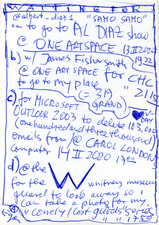 WAITING FOR
@albert_diaz1 "SAMO SAMO"
a) to go to AL DIAZ show
@ ONE ART SPACE 13 II 2020
b) w/ James Fishersmith 1932
@ ONE ART SPACE for CHC
to go to my place 21 15
(= 39)
c) for MICROSOFT GRAND
OUTLOOK 2003 to delete 103,000
one hundred and three thousand
emails from @ CAROL LONDON
computer 14 II 2020 17
d) @ the W
for the whitney museum
guard to look away so I
can take a photo for my
"lonely/lost guards series"